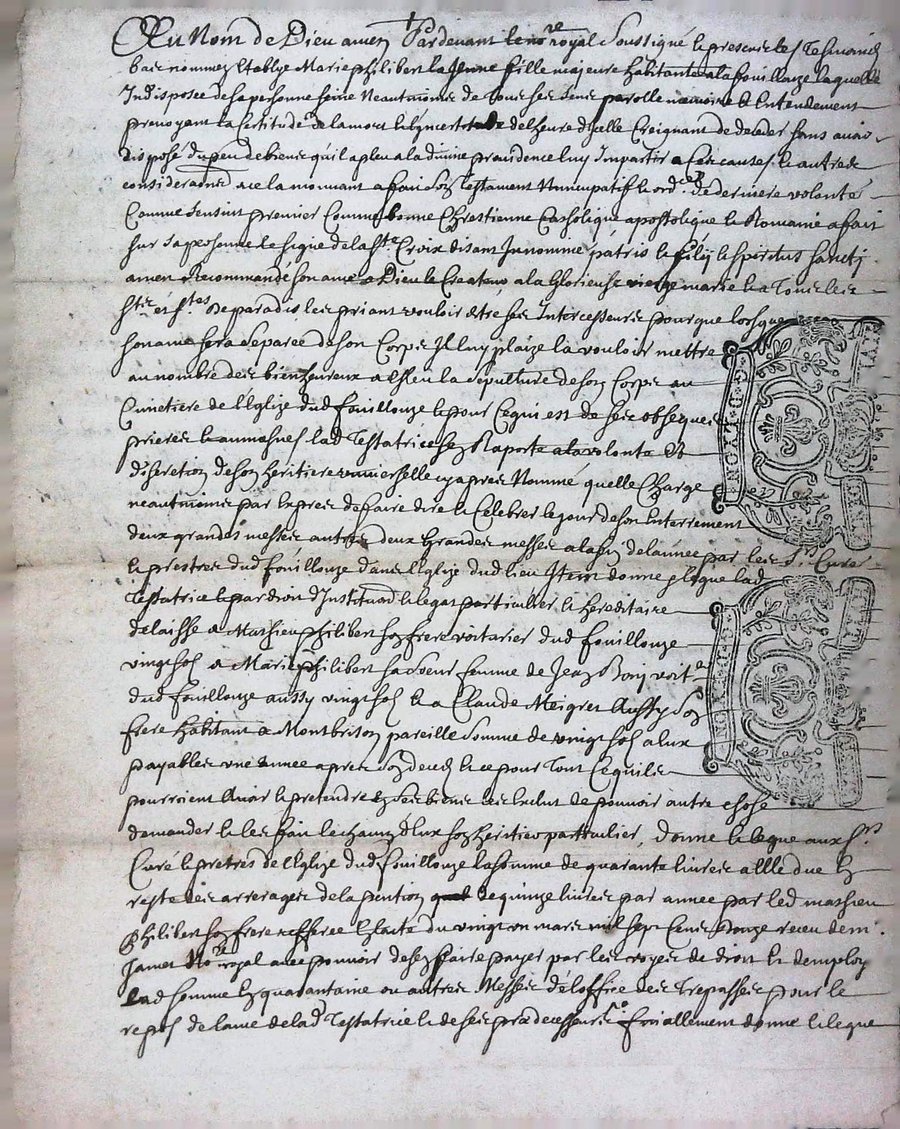 Au Nom de Dieu amen Pardevant le no.re royal Soussigné et presens les Tesmoins
bas nommez Establye Marie philibert la Jeune fille majeure habitante a la fouillouze laquelle
Indisposee de sa personne seine Neautmoins de Tous ses sens parolle memoire & Entendement
prevoyant la sertitude de la mort et lIncertitude de lheure dIcelle Creignant de deceder sans avoir
disposé du peu de biens qu'il a pleu a la divine providence luy Impartir a ses causes et autres
considerations a ce la mouvant a fait son Testament Nuncupatif et ord.ce de derniere volonté
Comme sensuit premier Comme bonne Chrestienne Catholique apostolique et Romaine a fait
sur sa personne le signe de la s.te Croix disant In nomine patris et filij et spiritus sancti
amen Recommandé son ame a Dieu le Createur a la Glorieuse vierge marie et a Tous les
s.ts et s.tes de paradis les priant vouloir estre ses Intercesseurs pour que lorsque
son ame sera separee de son Corps Il luy plaize la vouloir mettre
au nombre des bienheureux a Esleu la sepulture de son Corps au
Cimetiere de lEglize dud fouillouze et pour Ce qui est de ses obseques
prieres et aumosnes lad Testatrice sen Raporte a la volonté &
discretion de son heritiere universelle cy apres Nommé quelle Charge
neautmoins par Expres de faire dire et Celebrer le jour de son Enterrement
deux grandes messes autres deux Grandes messes a la fin de lannee par les S.rs Curé
et prestres dud fouillouze dans lEglize dud lieu Item donne et legue lad
Testatrice et par droit dInstitution et legat particulier et hereditaire
delaisse a Mathieu philibert son frere voiturier dud fouillouze
vingt sols a Marie philibert sa soeur femme de Jean Bony voit.r
dud fouillouze aussy vingt sols & a Claude Meigret Aussy son
frere habitant a Montbrison pareille somme de vingt sols a Eux
payables une annee apres son deces et ce pour Tout Ce quils
pourroient Avoir et pretendre En ses biens les Exclut de pouvoir autre chose
demander et les fait et chacun dEux son heritier particulier, donne et legue aux S.rs
Curé et pretres de lEglize dud fouillouze la somme de quarante livres a Elle due En
reste des arrerages de la pention de quinze livres par annee par led mathieu
philibert son frere Enoncee En lacte du vingt un mars mil sept Cens douze receu de m.e
Jamet No.re royal avec pouvoir de sen faire payer par les voyes de droit et demploy
lad somme En quarantaine ou autres Messes de loffice des Trepasses pour le
repos de lame de lad Testatrice et de ses predecesseurs finallement donne et legue
LYON
LYON